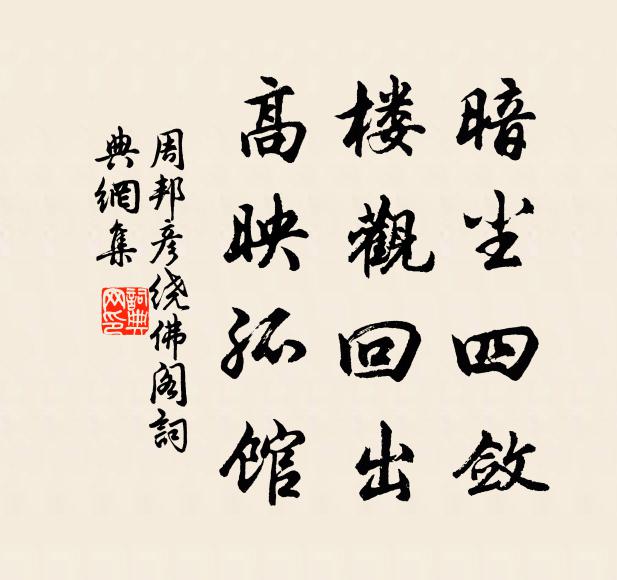 暗尘四敛
楼觀回出
高映孤馆
周邦彦绕佛阁詞
典網集
詞典网印